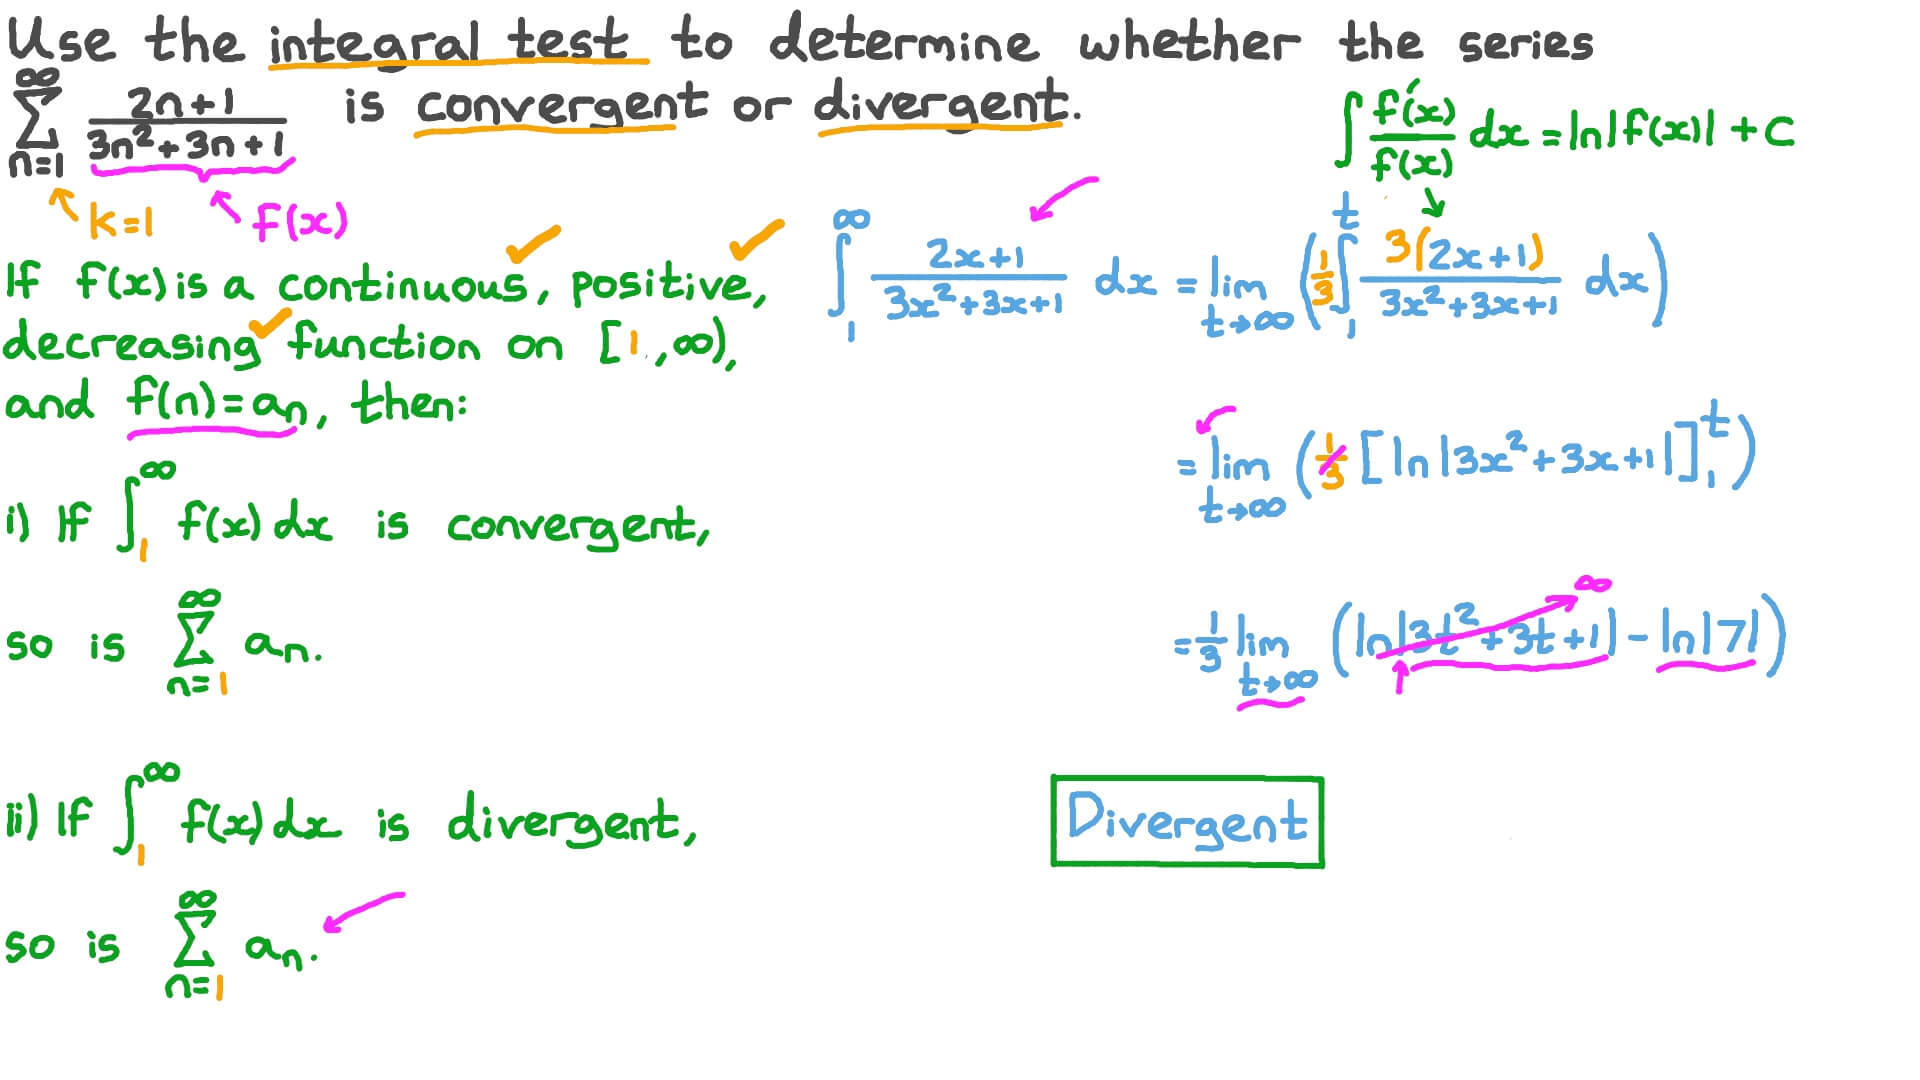 Use the integral test to determine whether the series
∞ ∑ n=1 2n+1 / 3n²+3n+1 is convergent or divergent.
k=1 f(x)
If f(x) is a continuous, positive,
decreasing function on [1, ∞),
and f(n)=aₙ, then:
i) If ∫₁^∞ f(x) dx is convergent,
so is ∞ ∑ n=1 aₙ.
ii) If ∫₁^∞ f(x) dx is divergent,
so is ∞ ∑ n=1 aₙ.
∫ f'(x) / f(x) dx = ln|f(x)| + C
∫₁^∞ 2x+1 / 3x²+3x+1 dx = lim t→∞ (1/3 ∫₁^t 3(2x+1) / 3x²+3x+1 dx)
= lim t→∞ (1/3 [ln|3x²+3x+1|]₁^t)
∞
= 1/3 lim t→∞ (ln|3t²+3t+1| - ln|7|)
Divergent